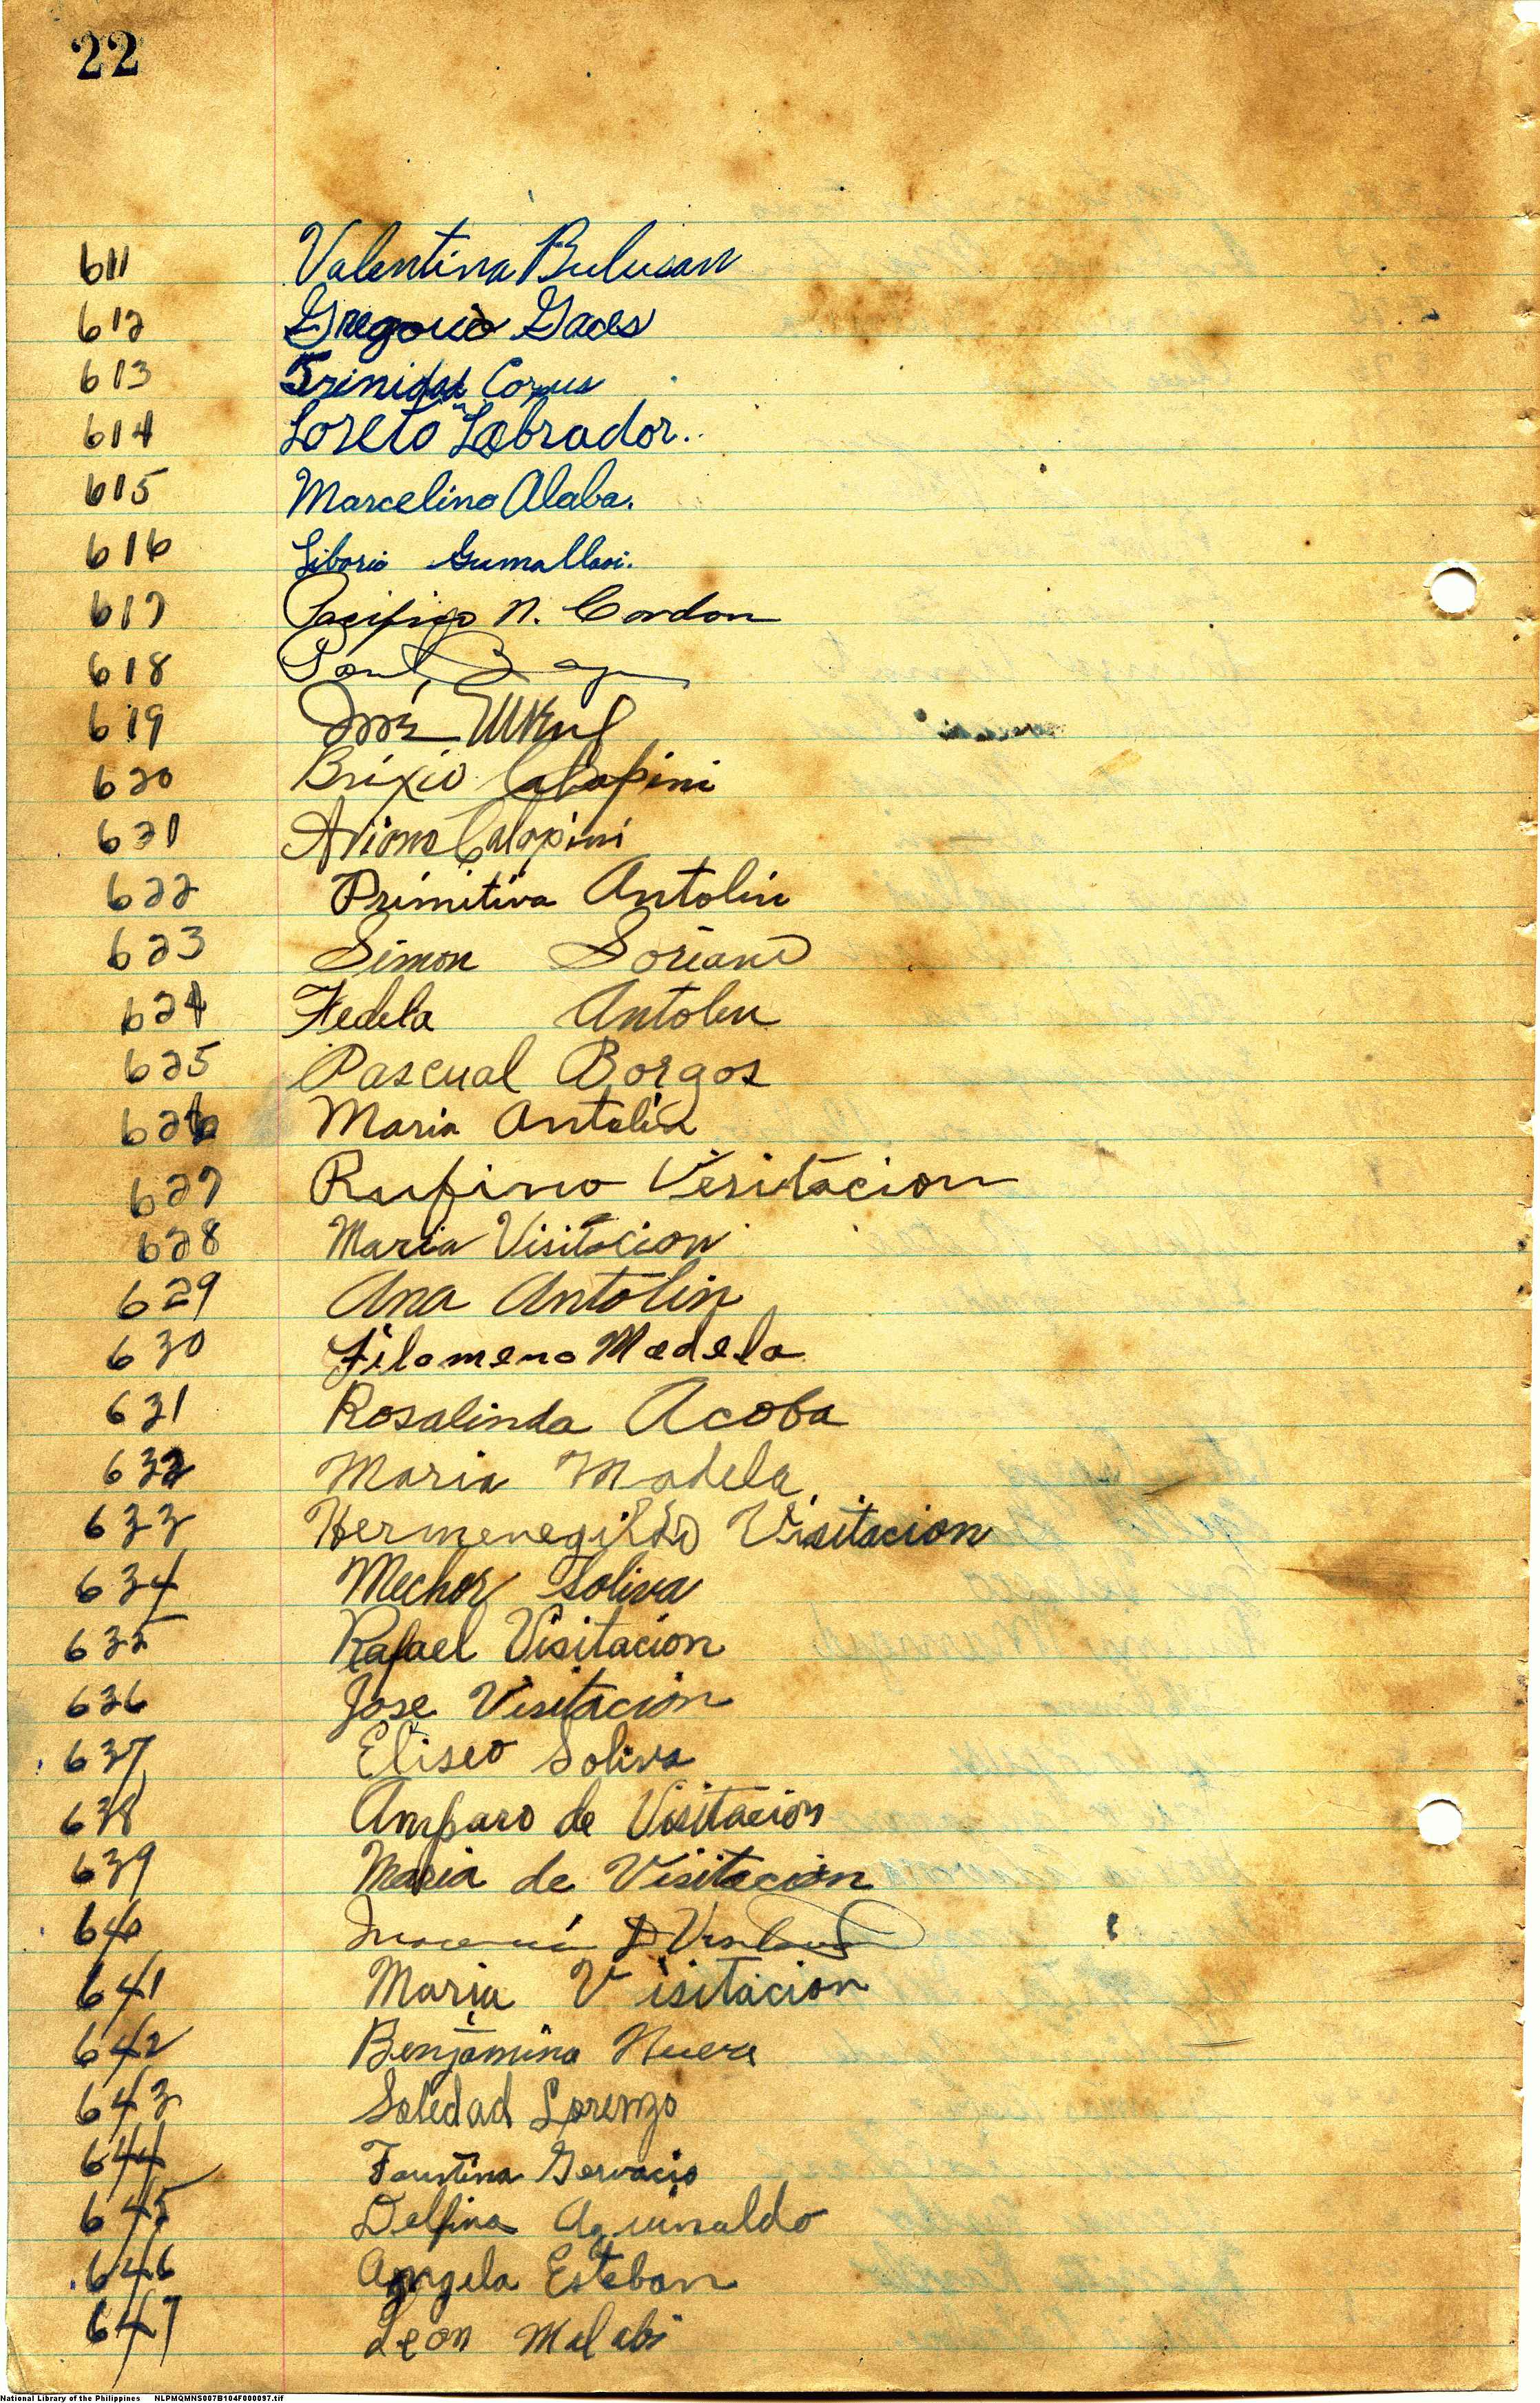 22
611 Valentina Bulusan
612 Gregorio Gaces
613 Trinidad Corpus
614 Loreto Labrador.
615 Marcelino Alaba.
616 Liborio
617 Pacifico N. Cordon
618
619 José
620 Brixio Calapini
621 Calapini
622 Primitiva Antolin
623 Simon Soriano
624 Fedela Antolin
625 Pascual Borgos
626 Maria Antolin
627 Rufino Visitacion
628 Maria Visitacion
629 Ana Antolin
630 Filomeno Madela
631 Rosalinda Acoba
632 Maria Madela
633 Hermenegildo Visitacion
634 Mechor Soliva
635 Rafael Visitacion
636 Jose Visitacion
637 Eliseo Soliva
638 Amparo de Visitacion
639 Maria de Visitacion
640
641 Maria Visitacion
642 Benjamina Nueva
643 Soledad Lorenzo
644 Faustina Gervacio
645 Delfina Aguinaldo
646 Angela Esteban
647 Leon Malabi
National Library of the Philippines NLPMQMNS007B104F000097.tif